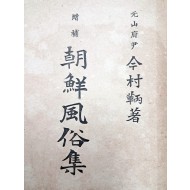 元山府尹
今村鞆著
增補
朝鮮風俗集